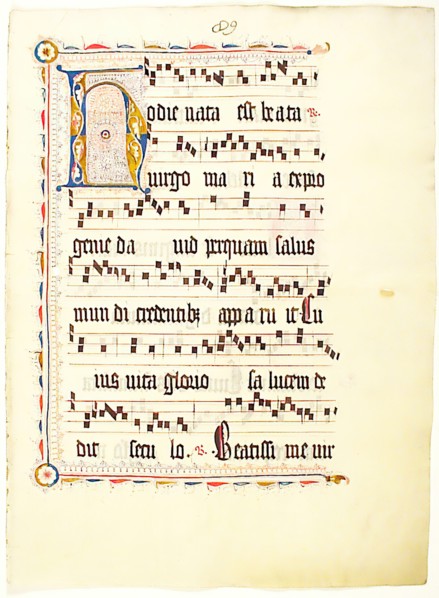 Hodie nata est beata
uirgo ma ri a expro
genie da uid perquam salus
mun di credentibꝫ app a ru it Cu
ius uita glorio sa lucem de
dit secu lo. R. Beatissi me uir